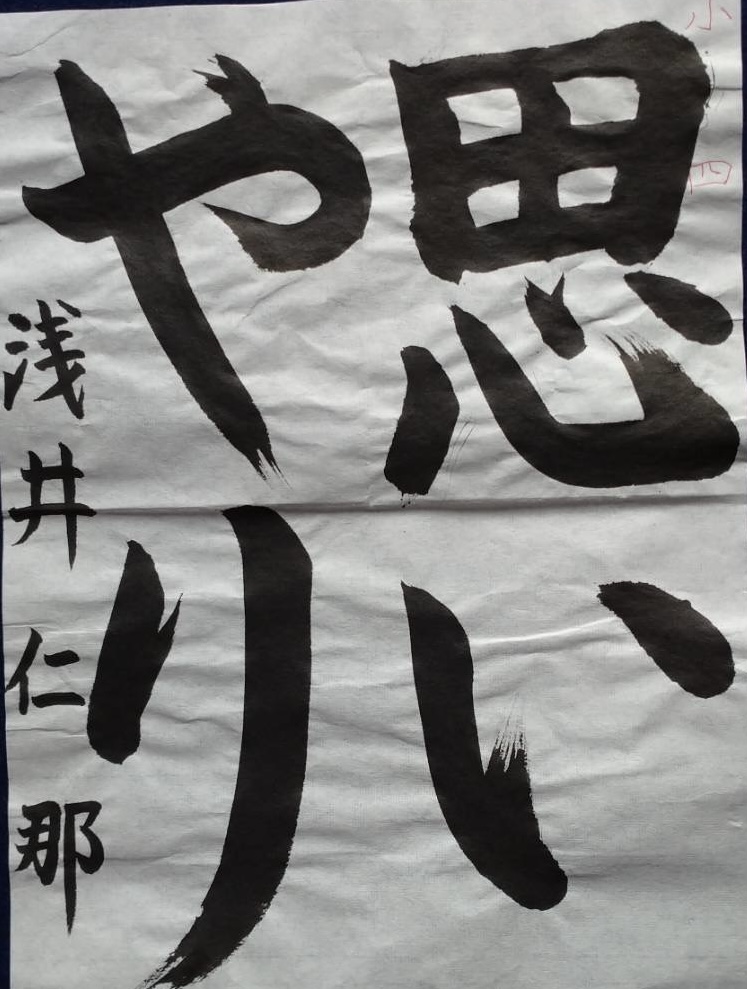 小四
思い
やり
浅井仁那